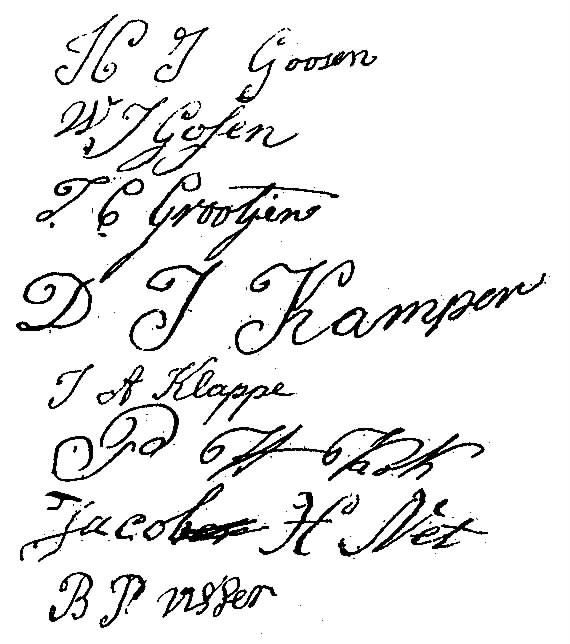 H J Goosen
W J Gosen
T. C. Grootjen
D J Kamper
J A Klappe
P W Kok
Jacober H Net
B P visser